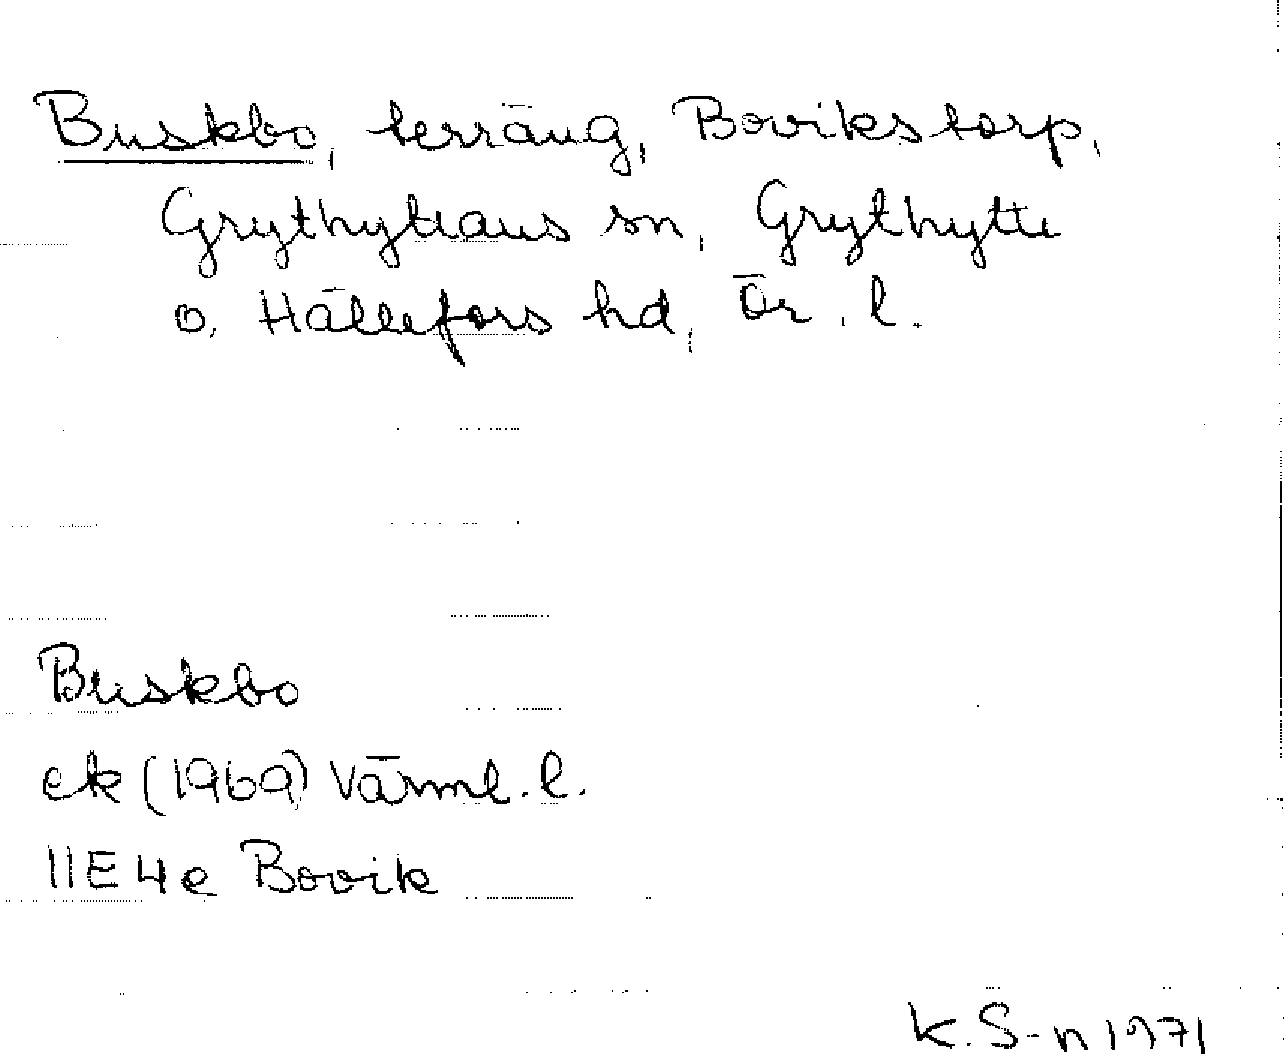 Buskbo, terräng, Bovikstorp,
Grythyttans sn, Grythytte
o. Hällefors hd, Ör. l.
Buskbo
ek (1969) Värml. l.
11E4e Bovik
K. S-n 1971